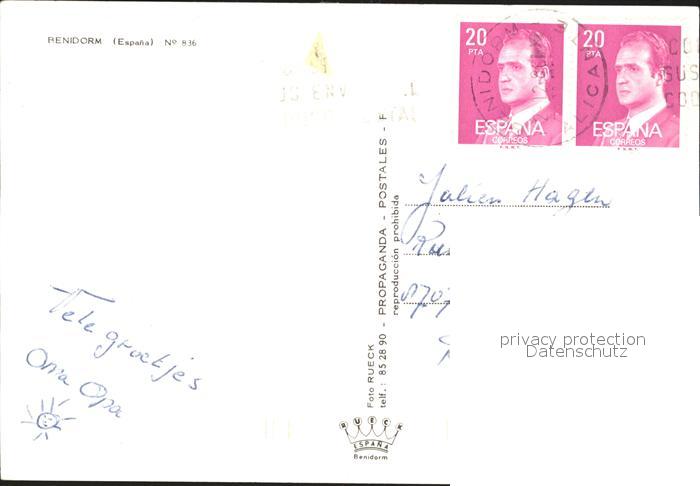 BENIDORM (España) Nº 836
20
PTA
ESPAÑA
CORREOS
F.N.M.T.
20
PTA
ESPAÑA
CORREOS
F.N.M.T.
BENIDORM
ALICA
Foto RUECK
telf.: 85 28 90 - PROPAGANDA - POSTALES - F
reproducción prohibida
Julien Hagen
privacy protection
Datenschutz
groetjes
Oma Opa
RUECK
ESPAÑA
Benidorm